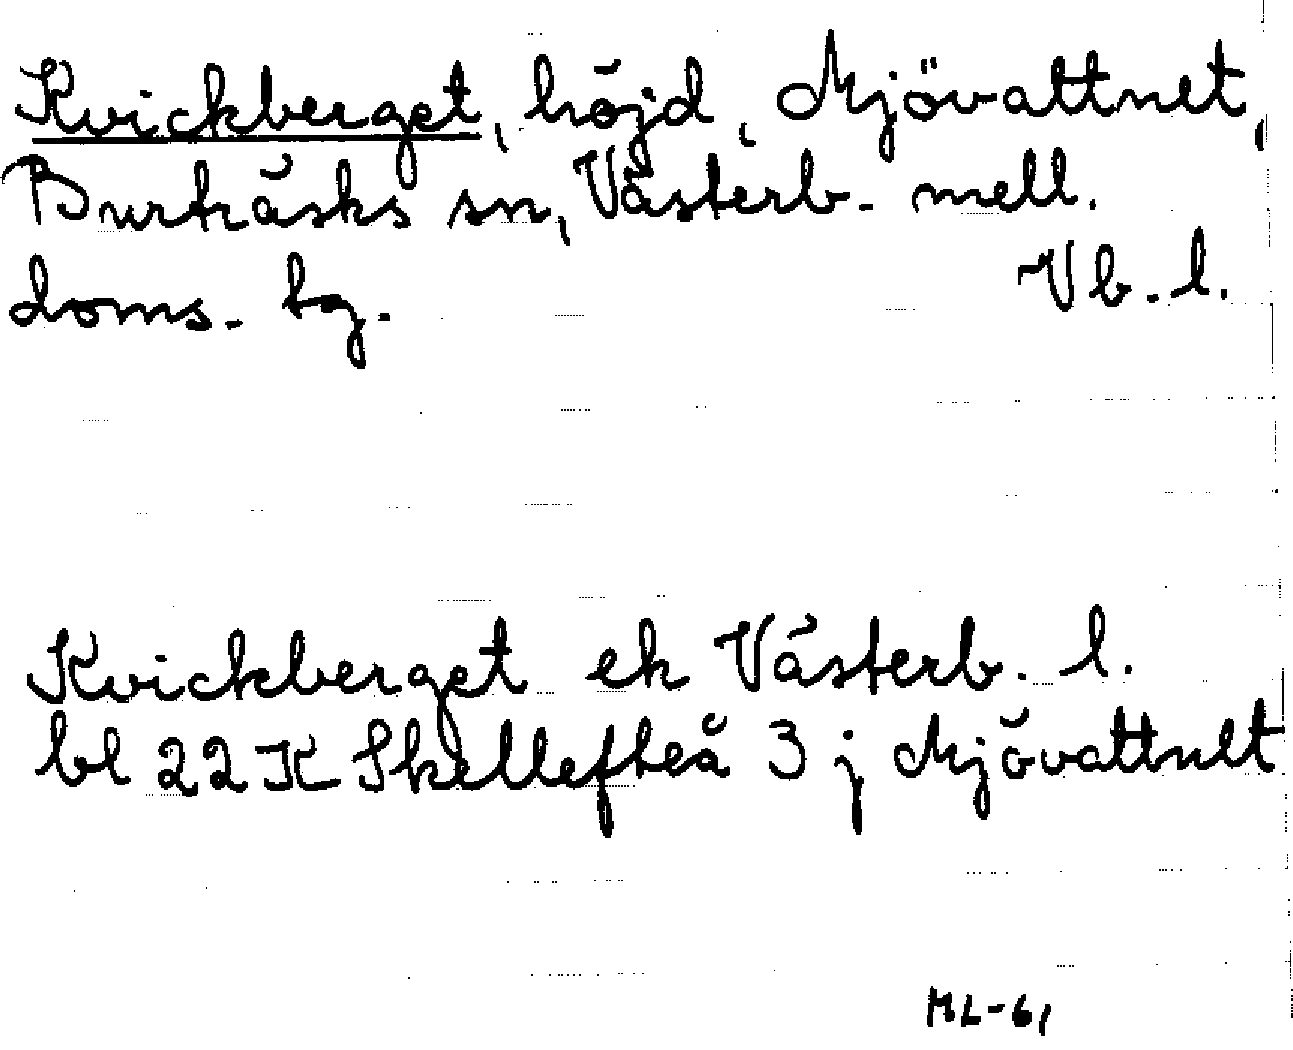 Kvickberget, höjd, Mjövattnet,
Burträsks sn, Västerb. mell.
doms. bg. Vb. l.
Kvickberget ek Västerb. l.
bl 22K Skellefteå 3 j Mjövattnet
ML-61